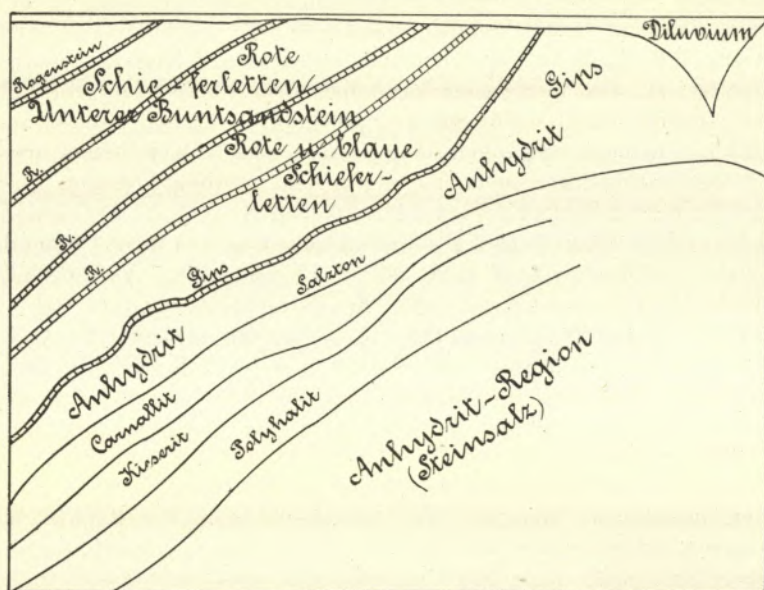 Diluvium
Rogenstein
Rote
Schieferletten
Unterer Buntsandstein
R.
Gips
Anhydrit
Rote u. blaue
Schiefer-
letten
R.
R.
Gips
Salzton
Anhydrit
Carnallit
Kieserit
Polyhalit
Anhydrit-Region
(Steinsalz)